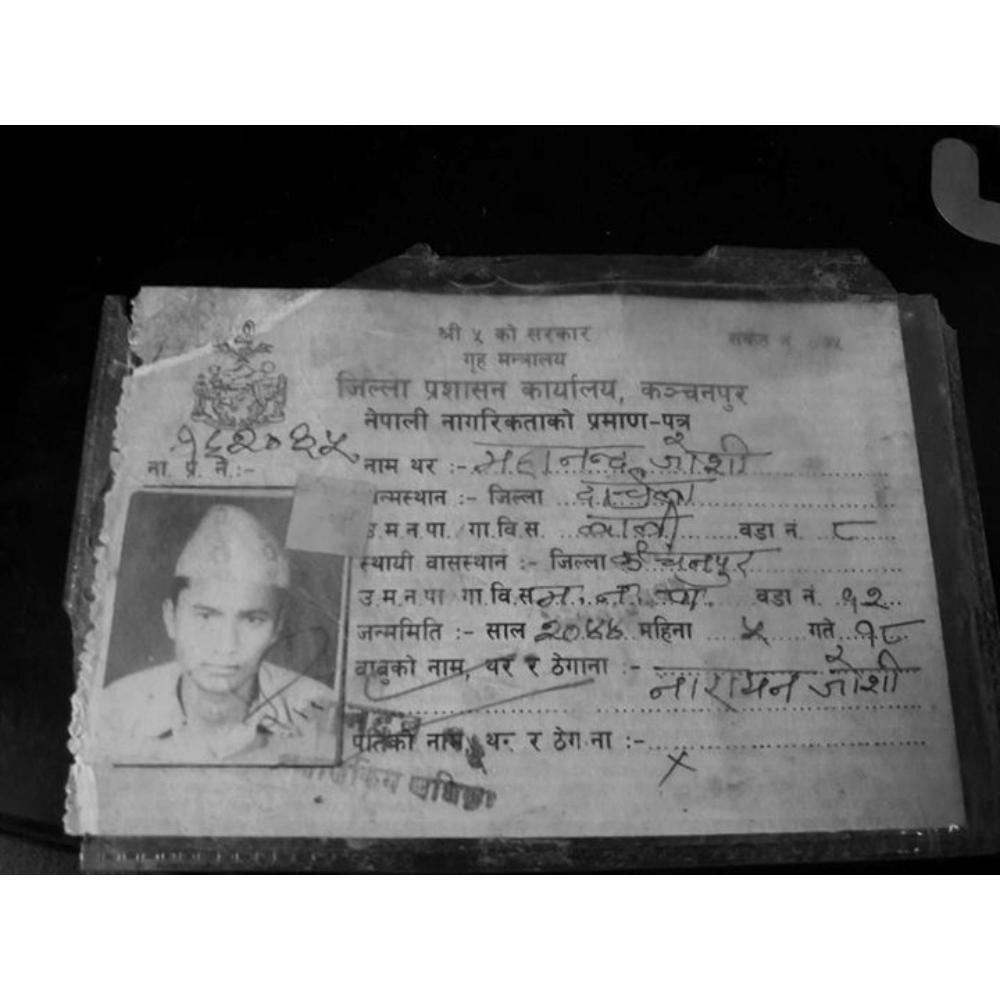 श्री ५ को सरकार
गृह मन्त्रालय
जिल्ला प्रशासन कार्यालय, कञ्चनपुर
नेपाली नागरिकताको प्रमाण-पत्र
ना. प्र. नं.:-
नाम थर :- महानन्द जोशी
जन्मस्थान :- जिल्ला दार्चुला
उ.म.न.पा. गा.वि.स. वडा नं. ८
स्थायी वासस्थान :- जिल्ला कंचनपुर
उ.म.न.पा गा.वि.स म.न.पा. वडा नं. १२
जन्ममिति :- साल २०४४ महिना ५ गते १८
बाबुको नाम, थर र ठेगाना :-
नारायन जोशी
पतिको नाम, थर र ठेगाना :-
x